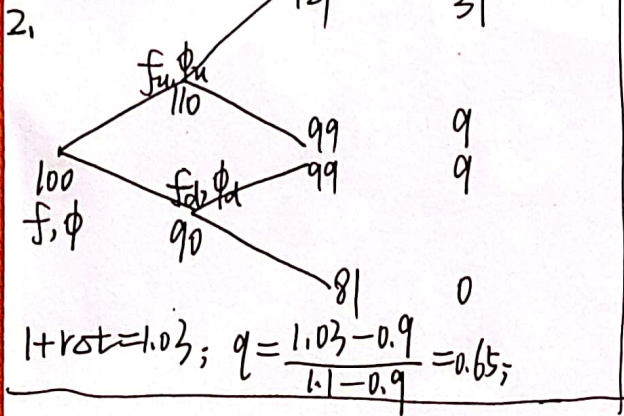 2,
121 31
fu, ϕu
110
99 9
99 9
100
fd, ϕd
f, ϕ
90
81 0
1+rδt=1.03; q = \frac{1.03-0.9}{1.1-0.9} = 0.65;